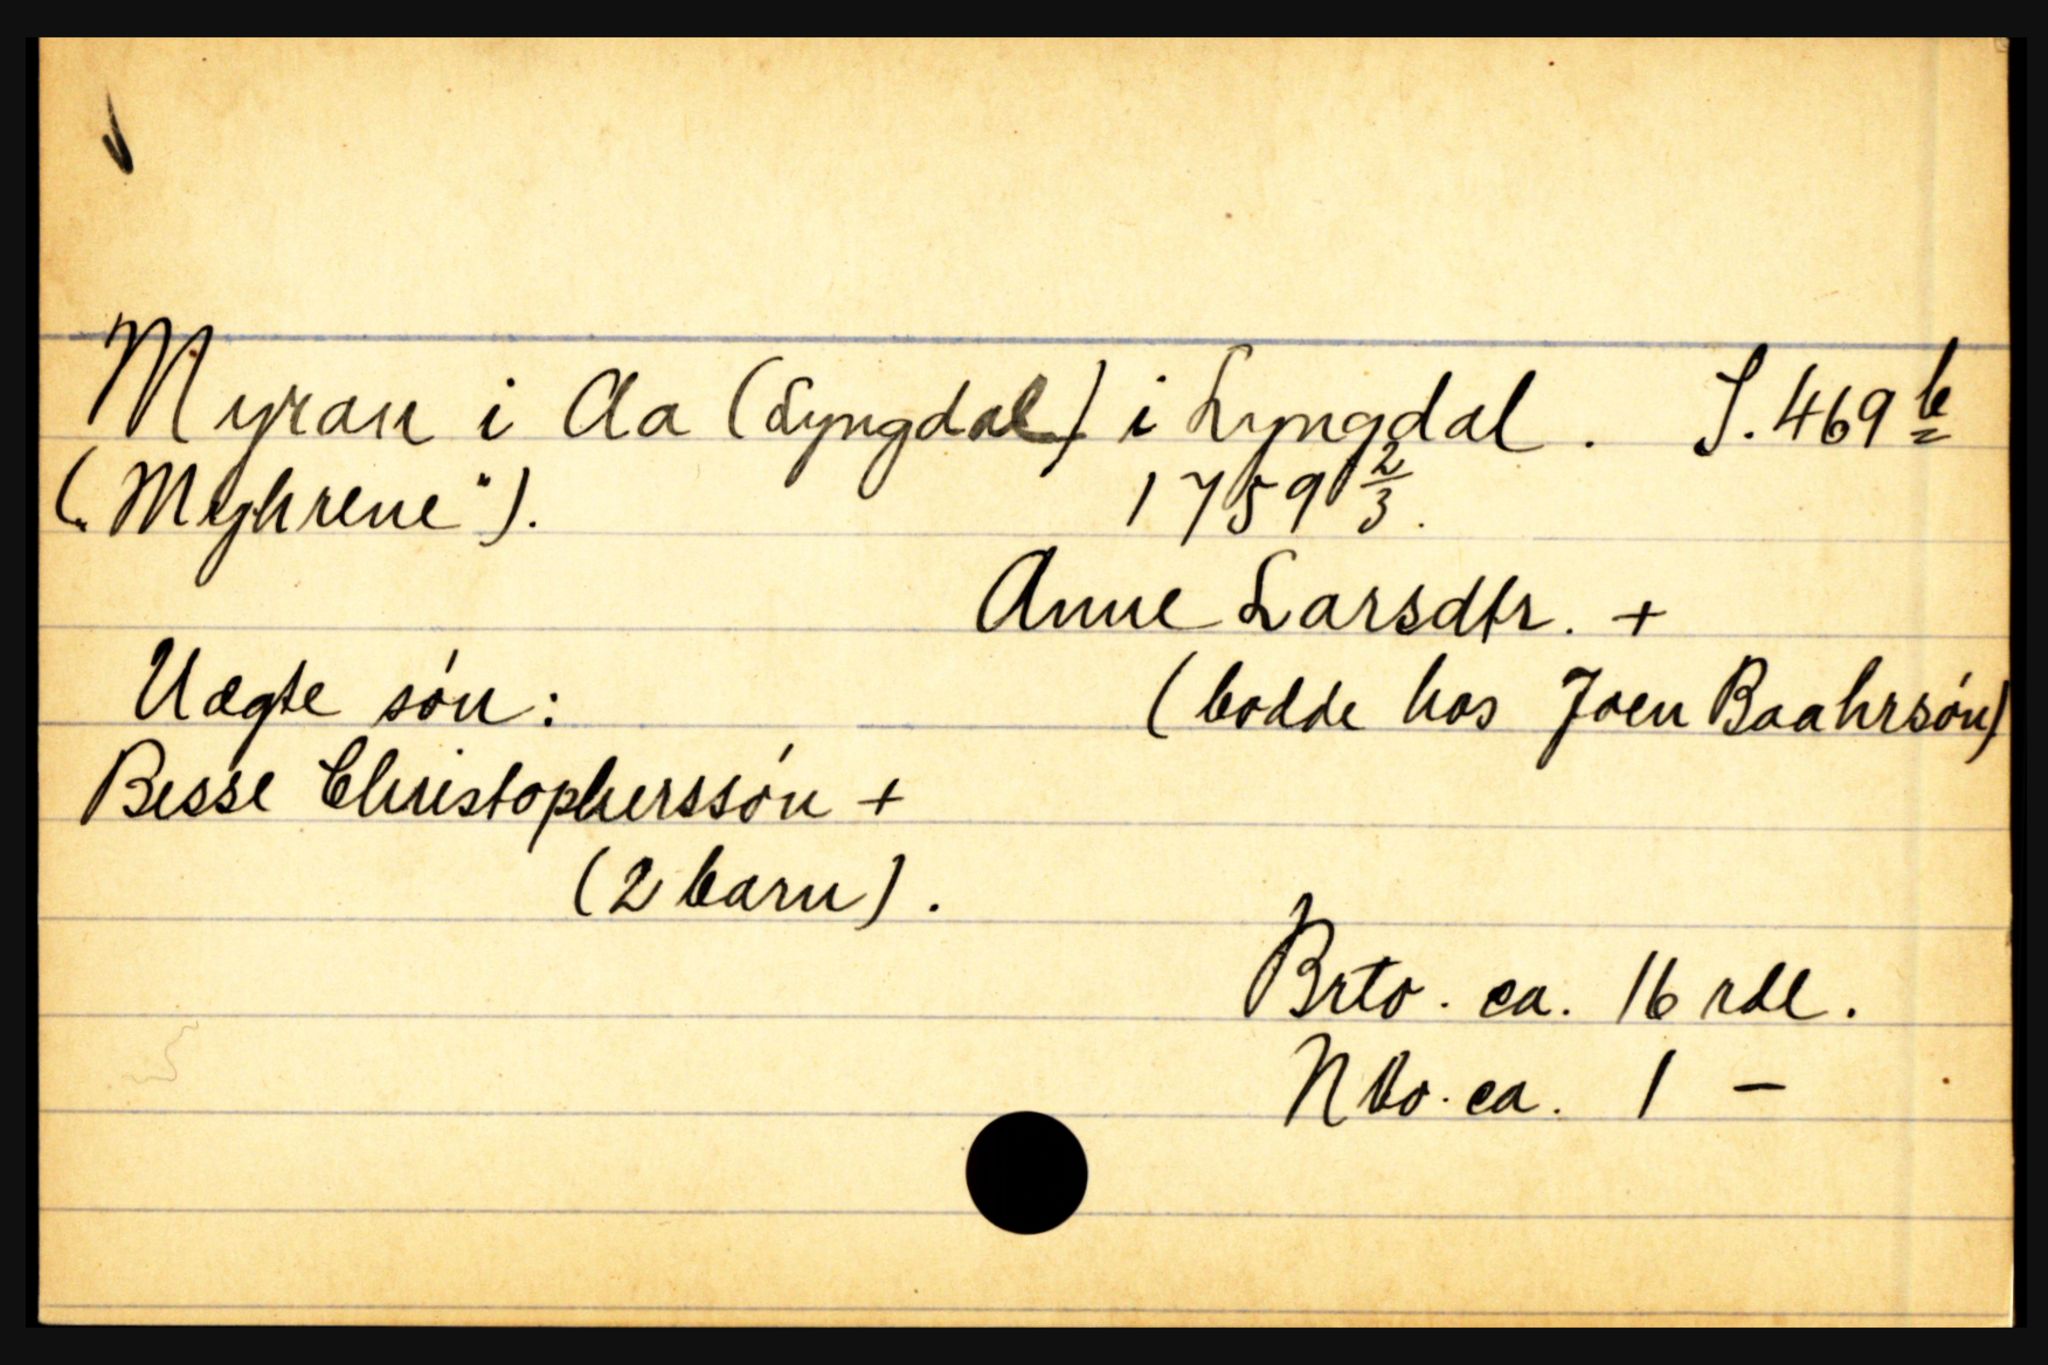 Myran i Aa (Lyngdal) i Lyngdal. S. 469 b
("Myhrene"). 1759 2/3.
Anne Larsdtr. +
Uægte søn: (bodde hos Joen Baahrsøn)
Besse Christopherssøn +
(2 barn).
Brto. ca. 16 rdl.
Nto. ca. 1 —